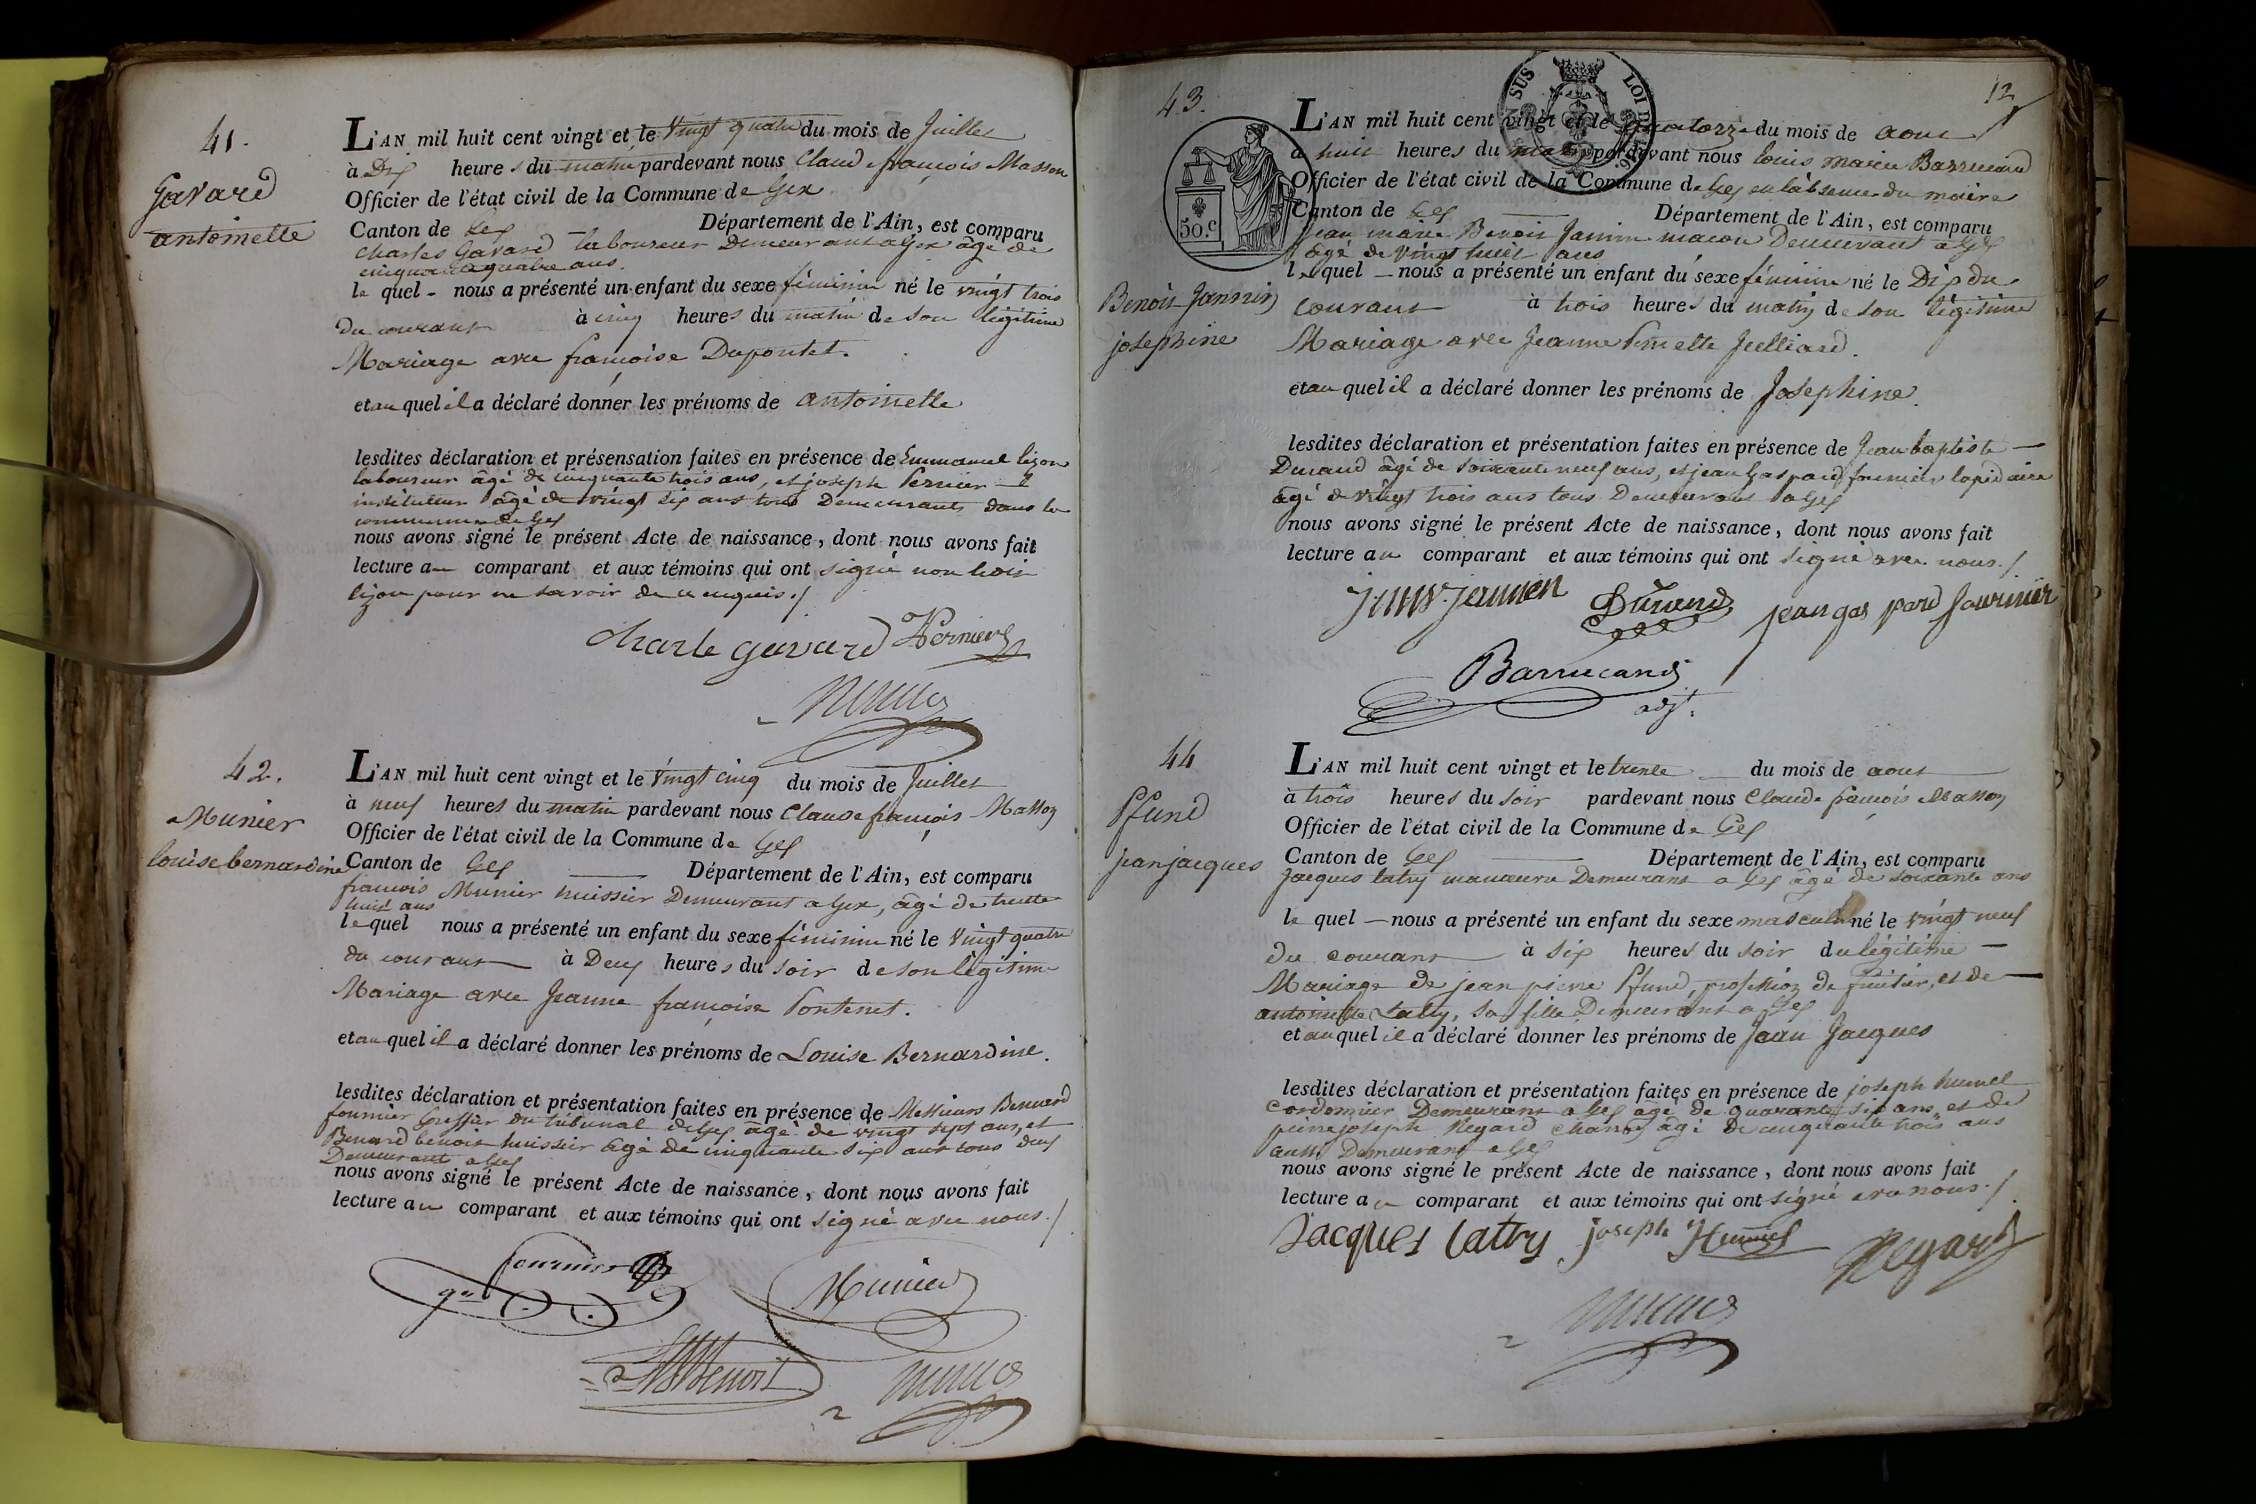 41.
Gavard
antoinette
L'AN mil huit cent vingt et le Vingt quatre du mois de Juillet
à Dix heures du matin pardevant nous Claude françois Masson
Officier de l'état civil de la Commune de Gex
Canton de Gex Département de l'Ain, est comparu
Charles Gavard laboureur Demeurant a Gex âgé de
cinquante quatre ans.
le quel - nous a présenté un enfant du sexe féminin né le vingt trois
du courant à cinq heures du matin de son légitime
Mariage avec françoise Dupontet.
et au quel il a déclaré donner les prénoms de antoinette
lesdites déclaration et présensation faites en présence de Emmanuel lizon
laboureur âgé de cinquante trois ans, et joseph Pernier
instituteur âgé de vingt six ans tous Demeurants dans la
commune de Gex
nous avons signé le présent Acte de naissance, dont nous avons fait
lecture au comparant et aux témoins qui ont signé non ledit
lizon pour ne savoir de ce enquis./
Charle gavard Pernier
42.
Munier
louise bernardine
L'AN mil huit cent vingt et le Vingt cinq du mois de Juillet
à neuf heures du matin pardevant nous Claude françois Masson
Officier de l'état civil de la Commune de Gex
Canton de Gex Département de l'Ain, est comparu
francois Munier huissier Demeurant a Gex, âgé de trente
huit ans
lequel nous a présenté un enfant du sexe féminin né le Vingt quatre
du courant à Deux heures du soir de son légitime
Mariage avec Jeanne françoise Pontenet.
et au quel il a déclaré donner les prénoms de Louise Bernardine.
lesdites déclaration et présentation faites en présence de Messieurs Bernard
fournier Greffier du tribunal de Gex âgé de vingt sept ans, et
Benoit huissier âgé de cinquante six ans tous deux
Demeurant a Gex
nous avons signé le présent Acte de naissance, dont nous avons fait
lecture au comparant et aux témoins qui ont signé avec nous./
fournier
Munier
Benoit
12
43.
SUS LOI DE
50.c
Benoit Jannin
josephine
L'AN mil huit cent vingt et le quatorze du mois de aout
à huit heures du matin pardevant nous louis marie Barrucand
Officier de l'état civil de la Commune de Gex en l'absence du maire
Canton de Gex Département de l'Ain, est comparu
Jean marie Benoit Jannin macon Demeurant a Gex
âgé de Vingt huit ans
le quel — nous a présenté un enfant du sexe féminin né le Dix du
courant à trois heures du matin de son légitime
Mariage avec Jeanne Pernette Julliard.
et au quel il a déclaré donner les prénoms de Josephine.
lesdites déclaration et présentation faites en présence de Jean baptiste
Durand âgé de soixante neuf ans, et jean gaspard fournier lapidaire
âgé de vingt trois ans tous Demeurant a Gex
nous avons signé le présent Acte de naissance, dont nous avons fait
lecture au comparant et aux témoins qui ont signé avec nous./
Durand jean gas pard fournier
Barrucand
adjt.
44
Pfund
jean jacques
L'AN mil huit cent vingt et le trente du mois de aout
à trois heures du soir pardevant nous Claude françois Masson
Officier de l'état civil de la Commune de Gex
Canton de Gex Département de l'Ain, est comparu
Jacques latry manoeuvre Demeurant a Gex âgé de soixante ans
le quel — nous a présenté un enfant du sexe masculin né le vingt neuf
du courant à six heures du soir du légitime
Mariage de jean pierre Pfund, profession de fruitier, et de
antoinette Latry, sa fille Demeurant a Gex
et au quel il a déclaré donner les prénoms de Jean Jacques
lesdites déclaration et présentation faites en présence de joseph humel
cordonnier Demeurant a Gex âgé de quarante six ans, et de
pierre joseph Regard charron âgé de cinquante trois ans
aussi Demeurant a Gex
nous avons signé le présent Acte de naissance, dont nous avons fait
lecture au comparant et aux témoins qui ont signé avec nous./
Jacques latry joseph Hummel Regard